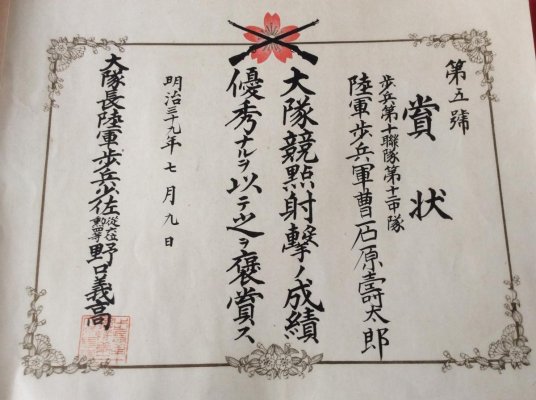 第五號
賞状
歩兵第十聯隊第十二中隊
陸軍歩兵軍曹石原壽太郎
大隊競點射撃ノ成績
優秀ナルヲ以テ之ヲ褒賞ス
明治三十九年七月九日
大隊長陸軍歩兵少佐從六位勲四等野口義高